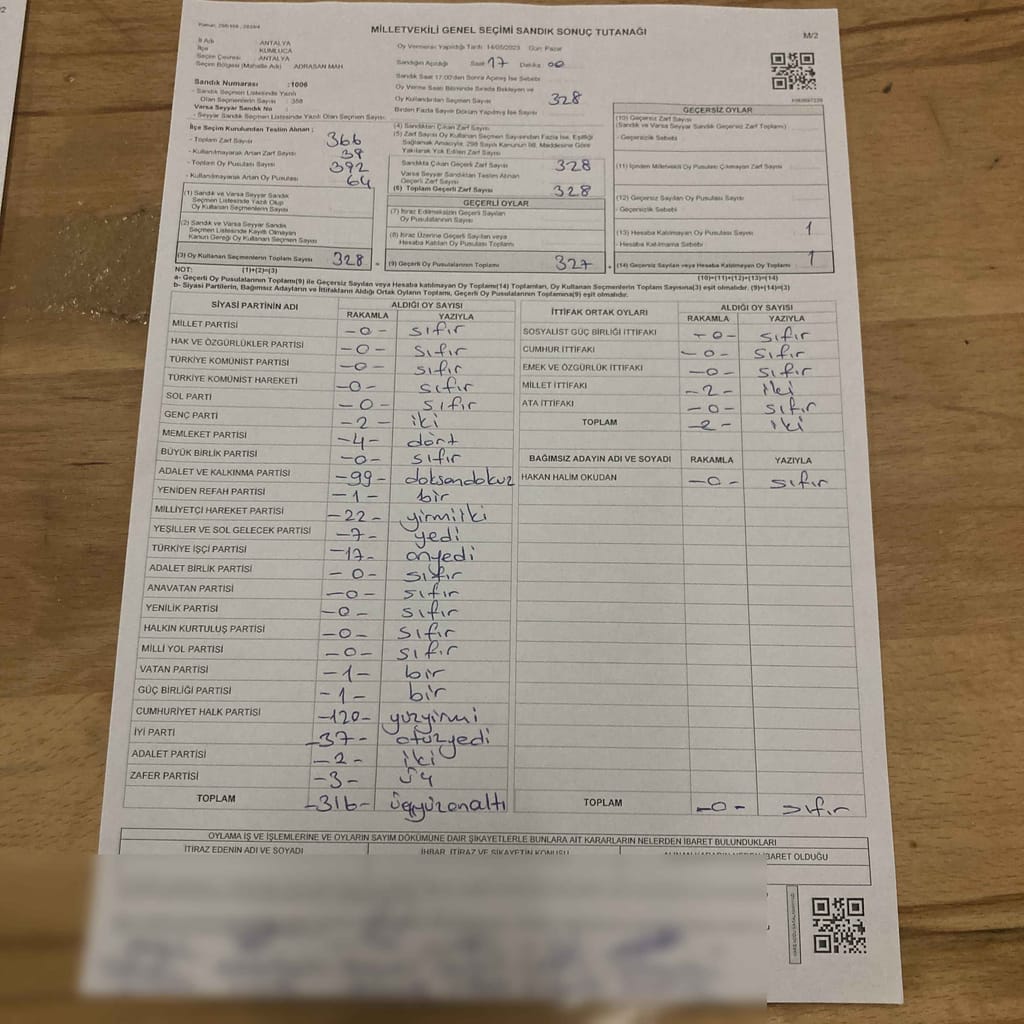 MİLLETVEKİLİ GENEL SEÇİMİ SANDIK SONUÇ TUTANAĞI
M/2
İl Adı ANTALYA
İlçe KUMLUCA
Seçim Çevresi ANTALYA
Seçim Bölgesi (Mahalle Adı) ADRASAN MAH.
Oy Vermenin Yapıldığı Tarih 14/05/2023 Gün: Pazar
Sandığın Açıldığı Saat 17 Dakika 00
Sandık Saat 17:00'den Sonra Açılmış İse Sebebi
Oy Verme Saati Bitiminde Sırada Bekleyen ve
Oy Kullandırılan Seçmen Sayısı 328
Birden Fazla Sayım Döküm Yapılmış İse Sayısı
Sandık Numarası :1006
- Sandık Seçmen Listesinde Yazılı
Olan Seçmenlerin Sayısı : 359
Varsa Seyyar Sandık No :
- Seyyar Sandık Seçmen Listesinde Yazılı Olan Seçmen Sayısı
İlçe Seçim Kurulundan Teslim Alınan ;
- Toplam Zarf Sayısı 366
- Kullanılmayarak Artan Zarf Sayısı 39
- Toplam Oy Pusulası Sayısı 392
- Kullanılmayarak Artan Oy Pusulası 64
(1) Sandık ve Varsa Seyyar Sandık
Seçmen Listesinde Yazılı Olup
Oy Kullanan Seçmenlerin Sayısı
(2) Sandık ve Varsa Seyyar Sandık
Seçmen Listesinde Kayıtlı Olmayan
Kanun Gereği Oy Kullanan Seçmen Sayısı
(3) Oy Kullanan Seçmenlerin Toplam Sayısı 328
(4) Sandıktan Çıkan Zarf Sayısı
(5) Zarf Sayısı Oy Kullanan Seçmen Sayısından Fazla İse, Eşitliği
Sağlamak Amacıyla, 298 Sayılı Kanunun 98. Maddesine Göre
Yakılarak Yok Edilen Zarf Sayısı
Sandıkta Çıkan Geçerli Zarf Sayısı 328
Varsa Seyyar Sandıktan Teslim Alınan
Geçerli Zarf Sayısı
(6) Toplam Geçerli Zarf Sayısı 328
GEÇERLİ OYLAR
(7) İtiraz Edilmeksizin Geçerli Sayılan
Oy Pusulalarının Sayısı
(8) İtiraz Üzerine Geçerli Sayılan veya
Hesaba Katılan Oy Pusulası Toplamı
= (9) Geçerli Oy Pusulalarının Toplamı 327
GEÇERSİZ OYLAR
(10) Geçersiz Zarf Sayısı
(Sandık ve Varsa Seyyar Sandık Geçersiz Zarf Toplamı)
- Geçersizlik Sebebi
(11) İçinden Milletvekili Oy Pusulası Çıkmayan Zarf Sayısı
(12) Geçersiz Sayılan Oy Pusulası Sayısı
- Geçersizlik Sebebi
(13) Hesaba Katılmayan Oy Pusulası Sayısı 1
- Hesaba Katılmama Sebebi
+ (14) Geçersiz Sayılan veya Hesaba Katılmayan Oy Toplamı 1
NOT: (1)+(2)=(3) (10)+(11)+(12)+(13)=(14)
a- Geçerli Oy Pusulalarının Toplamı(9) ile Geçersiz Sayılan veya Hesaba Katılmayan Oy Toplamı(14) Toplamları, Oy Kullanan Seçmenlerin Toplam Sayısına(3) eşit olmalıdır. (9)+(14)=(3)
b- Siyasi Partilerin, Bağımsız Adayların ve İttifakların Aldığı Ortak Oyların Toplamı, Geçerli Oy Pusulalarının Toplamına(9) eşit olmalıdır.
SİYASİ PARTİNİN ADI ALDIĞI OY SAYISI
RAKAMLA YAZIYLA
MİLLET PARTİSİ -0- sıfır
HAK VE ÖZGÜRLÜKLER PARTİSİ -0- sıfır
TÜRKİYE KOMÜNİST PARTİSİ -0- sıfır
TÜRKİYE KOMÜNİST HAREKETİ -0- sıfır
SOL PARTİ -0- sıfır
GENÇ PARTİ -2- iki
MEMLEKET PARTİSİ -4- dört
BÜYÜK BİRLİK PARTİSİ -0- sıfır
ADALET VE KALKINMA PARTİSİ -99- doksandokuz
YENİDEN REFAH PARTİSİ -1- bir
MİLLİYETÇİ HAREKET PARTİSİ -22- yirmiiki
YEŞİLLER VE SOL GELECEK PARTİSİ -7- yedi
TÜRKİYE İŞÇİ PARTİSİ -17- onyedi
ADALET BİRLİK PARTİSİ -0- sıfır
ANAVATAN PARTİSİ -0- sıfır
YENİLİK PARTİSİ -0- sıfır
HALKIN KURTULUŞ PARTİSİ -0- sıfır
MİLLİ YOL PARTİSİ -0- sıfır
VATAN PARTİSİ -1- bir
GÜÇ BİRLİĞİ PARTİSİ -1- bir
CUMHURİYET HALK PARTİSİ -120- yüzyirmi
İYİ PARTİ -37- otuzyedi
ADALET PARTİSİ -2- iki
ZAFER PARTİSİ -3- üç
TOPLAM -316- üçyüzonaltı
İTTİFAK ORTAK OYLARI ALDIĞI OY SAYISI
RAKAMLA YAZIYLA
SOSYALİST GÜÇ BİRLİĞİ İTTİFAKI -0- sıfır
CUMHUR İTTİFAKI -0- sıfır
EMEK VE ÖZGÜRLÜK İTTİFAKI -0- sıfır
MİLLET İTTİFAKI -2- iki
ATA İTTİFAKI -0- sıfır
TOPLAM -2- iki
BAĞIMSIZ ADAYIN ADI VE SOYADI RAKAMLA YAZIYLA
HAKAN HALİM OKUDAN -0- sıfır
TOPLAM -0- sıfır
OYLAMA İŞ VE İŞLEMLERİNE VE OYLARIN SAYIM DÖKÜMÜNE DAİR ŞİKAYETLERLE BUNLARA AİT KARARLARIN NELERDEN İBARET BULUNDUKLARI
İTİRAZ EDENİN ADI VE SOYADI İHBAR, İTİRAZ VE ŞİKAYETİN KONUSU ALINAN KARARIN NEDEN İBARET OLDUĞU